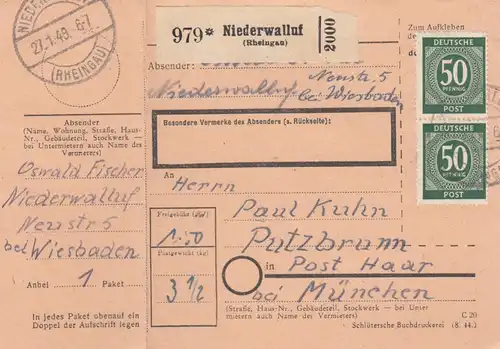 NIEDER
27.1.49. 8-7
(RHEINGAU)
979* Niederwalluf
(Rheingau)
2000
Zum Aufkleben
Absender:
Neustr. 5
Niederwalluf bei Wiesbaden
Besondere Vermerke des Absenders (s. Rückseite):
DEUTSCHE
50
PFENNIG
POST
DEUTSCHE
50
PFENNIG
POST
Absender
(Name, Wohnung, Straße, Haus-
Nr., Gebäudeteil, Stockwerk —
bei Untermietern auch Name des
Vermieters)
Oswald Fischer
Niederwalluf
Neustr 5
bei Wiesbaden
Anbei 1 Paket
In jedes Paket obenauf ein
Doppel der Aufschrift legen
An
Herrn
Paul Kuhn
Putzbrunn
in Post Haar
bei München
Freigebühr
Postgewicht (kg)
3 1/2
(Straße, Haus-Nr., Gebäudeteil, Stockwerk — bei Unter
mietern auch Name des Vermieters)
C 20
Schlütersche Buchdruckerei (8. 44.)